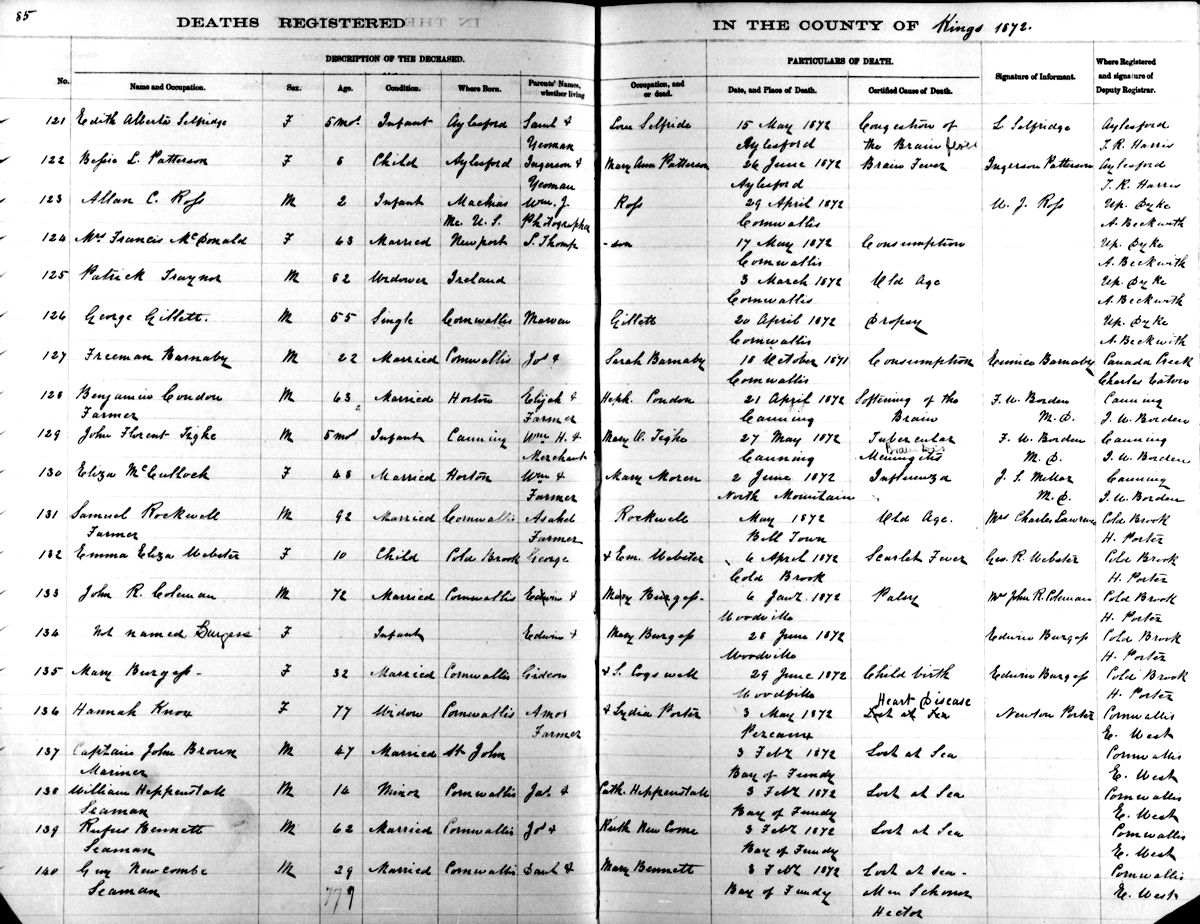 85
DEATHS REGISTERED IN THE COUNTY OF Kings 1872.
DESCRIPTION OF THE DECEASED. PARTICULARS OF DEATH.
No. Name and Occupation. Sex. Age. Condition. Where Born. Parents' Names, whether living Occupation, and or dead. Date, and Place of Death. Certified Cause of Death. Signature of Informant. Where Registered and signature of Deputy Registrar.
121 Edith Alberta Selfridge F 5 mos. Infant Aylesford Saml & Lova Selfride 15 May 1872 Congestion of L Selfridge Aylesford
Yeoman Aylesford the Brain T. R. Harris
122 Bessie L. Patterson F 6 Child Aylesford Ingerson & Mary Ann Patterson 26 June 1872 Brain Fever Ingerson Patterson Aylesford
Yeoman Aylesford T. R. Harris
123 Allan C. Ross M 2 Infant Machias Wm. J. Ross 29 April 1872 W. J. Ross Up. Dyke
Me U.S. Photographer Cornwallis A. Beckwith
124 Mrs Francis McDonald F 63 Married Newport S. Thomp -son 17 May 1872 Consumption Up. Dyke
Cornwallis A. Beckwith
125 Patrick Traynor M 62 Widower Ireland 3 March 1872 Old Age Up. Dyke
Cornwallis A. Beckwith
126 George Gillett. M 55 Single Cornwallis Gillett 20 April 1872 Dropsy Up. Dyke
Cornwallis A. Beckwith
127 Freeman Barnaby M 22 Married Cornwallis Jos & Sarah Barnaby 18 October 1871 Consumption Eunice Barnaby Canada Creek
Cornwallis Charles Eaton
128 Benjamin Condon M 63 Married Horton Elijah & Heph. Condon 21 April 1872 Softening of the F. W. Borden Canning
Farmer Farmer Canning Brain M.D. F. W. Borden
129 John Florent Tighe M 5 mos Infant Canning Wm H. & Mary V. Tighe 27 May 1872 Tubercular F. W. Borden Canning
Merchant Canning Meningitis M.D. F. W. Borden
130 Eliza McCullock F 48 Married Horton Wm & Mary Moren 2 June 1872 Influenza J. S. Miller Canning
Farmer North Mountain M.D. F. W. Borden
131 Samuel Rockwell M 92 Married Cornwallis Asahel Rockwell May 1872 Old Age. Mrs Charles Lawrence Cold Brook
Farmer Farmer Bill Town H. Porter
132 Emma Eliza Webster F 10 Child Cold Brook George & Em. Webster 6 April 1872 Scarlet Fever Geo. R. Webster Cold Brook
Cold Brook H. Porter
133 John R. Coleman M 72 Married Cornwallis Edwin & Mary Burgess. 6 Jany. 1872 Palsy Mrs John R. Coleman Cold Brook
Woodville H. Porter
134 Not named Burgess F Infant Edwin & Mary Burgess 28 June 1872 Edwin Burgess Cold Brook
Woodville H. Porter
135 Mary Burgess. F 32 Married Cornwallis Gideon & S. Cogswell 29 June 1872 Child birth Edwin Burgess Cold Brook
Woodville H. Porter
136 Hannah Knox F 77 Widow Cornwallis Amos & Lydia Porter 3 May 1872 Heart Disease Lost at Sea Newton Porter Cornwallis
Farmer Pereaux E. West
137 Captain John Brown M 47 Married St John 3 Feby 1872 Lost at Sea Cornwallis
Mariner Bay of Fundy E. West
138 William Heppenstall M 14 Minor Cornwallis Jas. & Cath. Heppenstall 3 Feby 1872 Lost at Sea Cornwallis
Seaman Bay of Fundy E. West
139 Rufus Bennett M 62 Married Cornwallis Jos & Ruth New Come 3 Feby 1872 Lost at Sea Cornwallis
Seaman Bay of Fundy E. West
140 Guy Newcombe M 29 Married Cornwallis Danl & Mary Bennett 3 Feby 1872 Lost at Sea. Cornwallis
Seaman 779 Bay of Fundy Men Schoner E. West
Hector